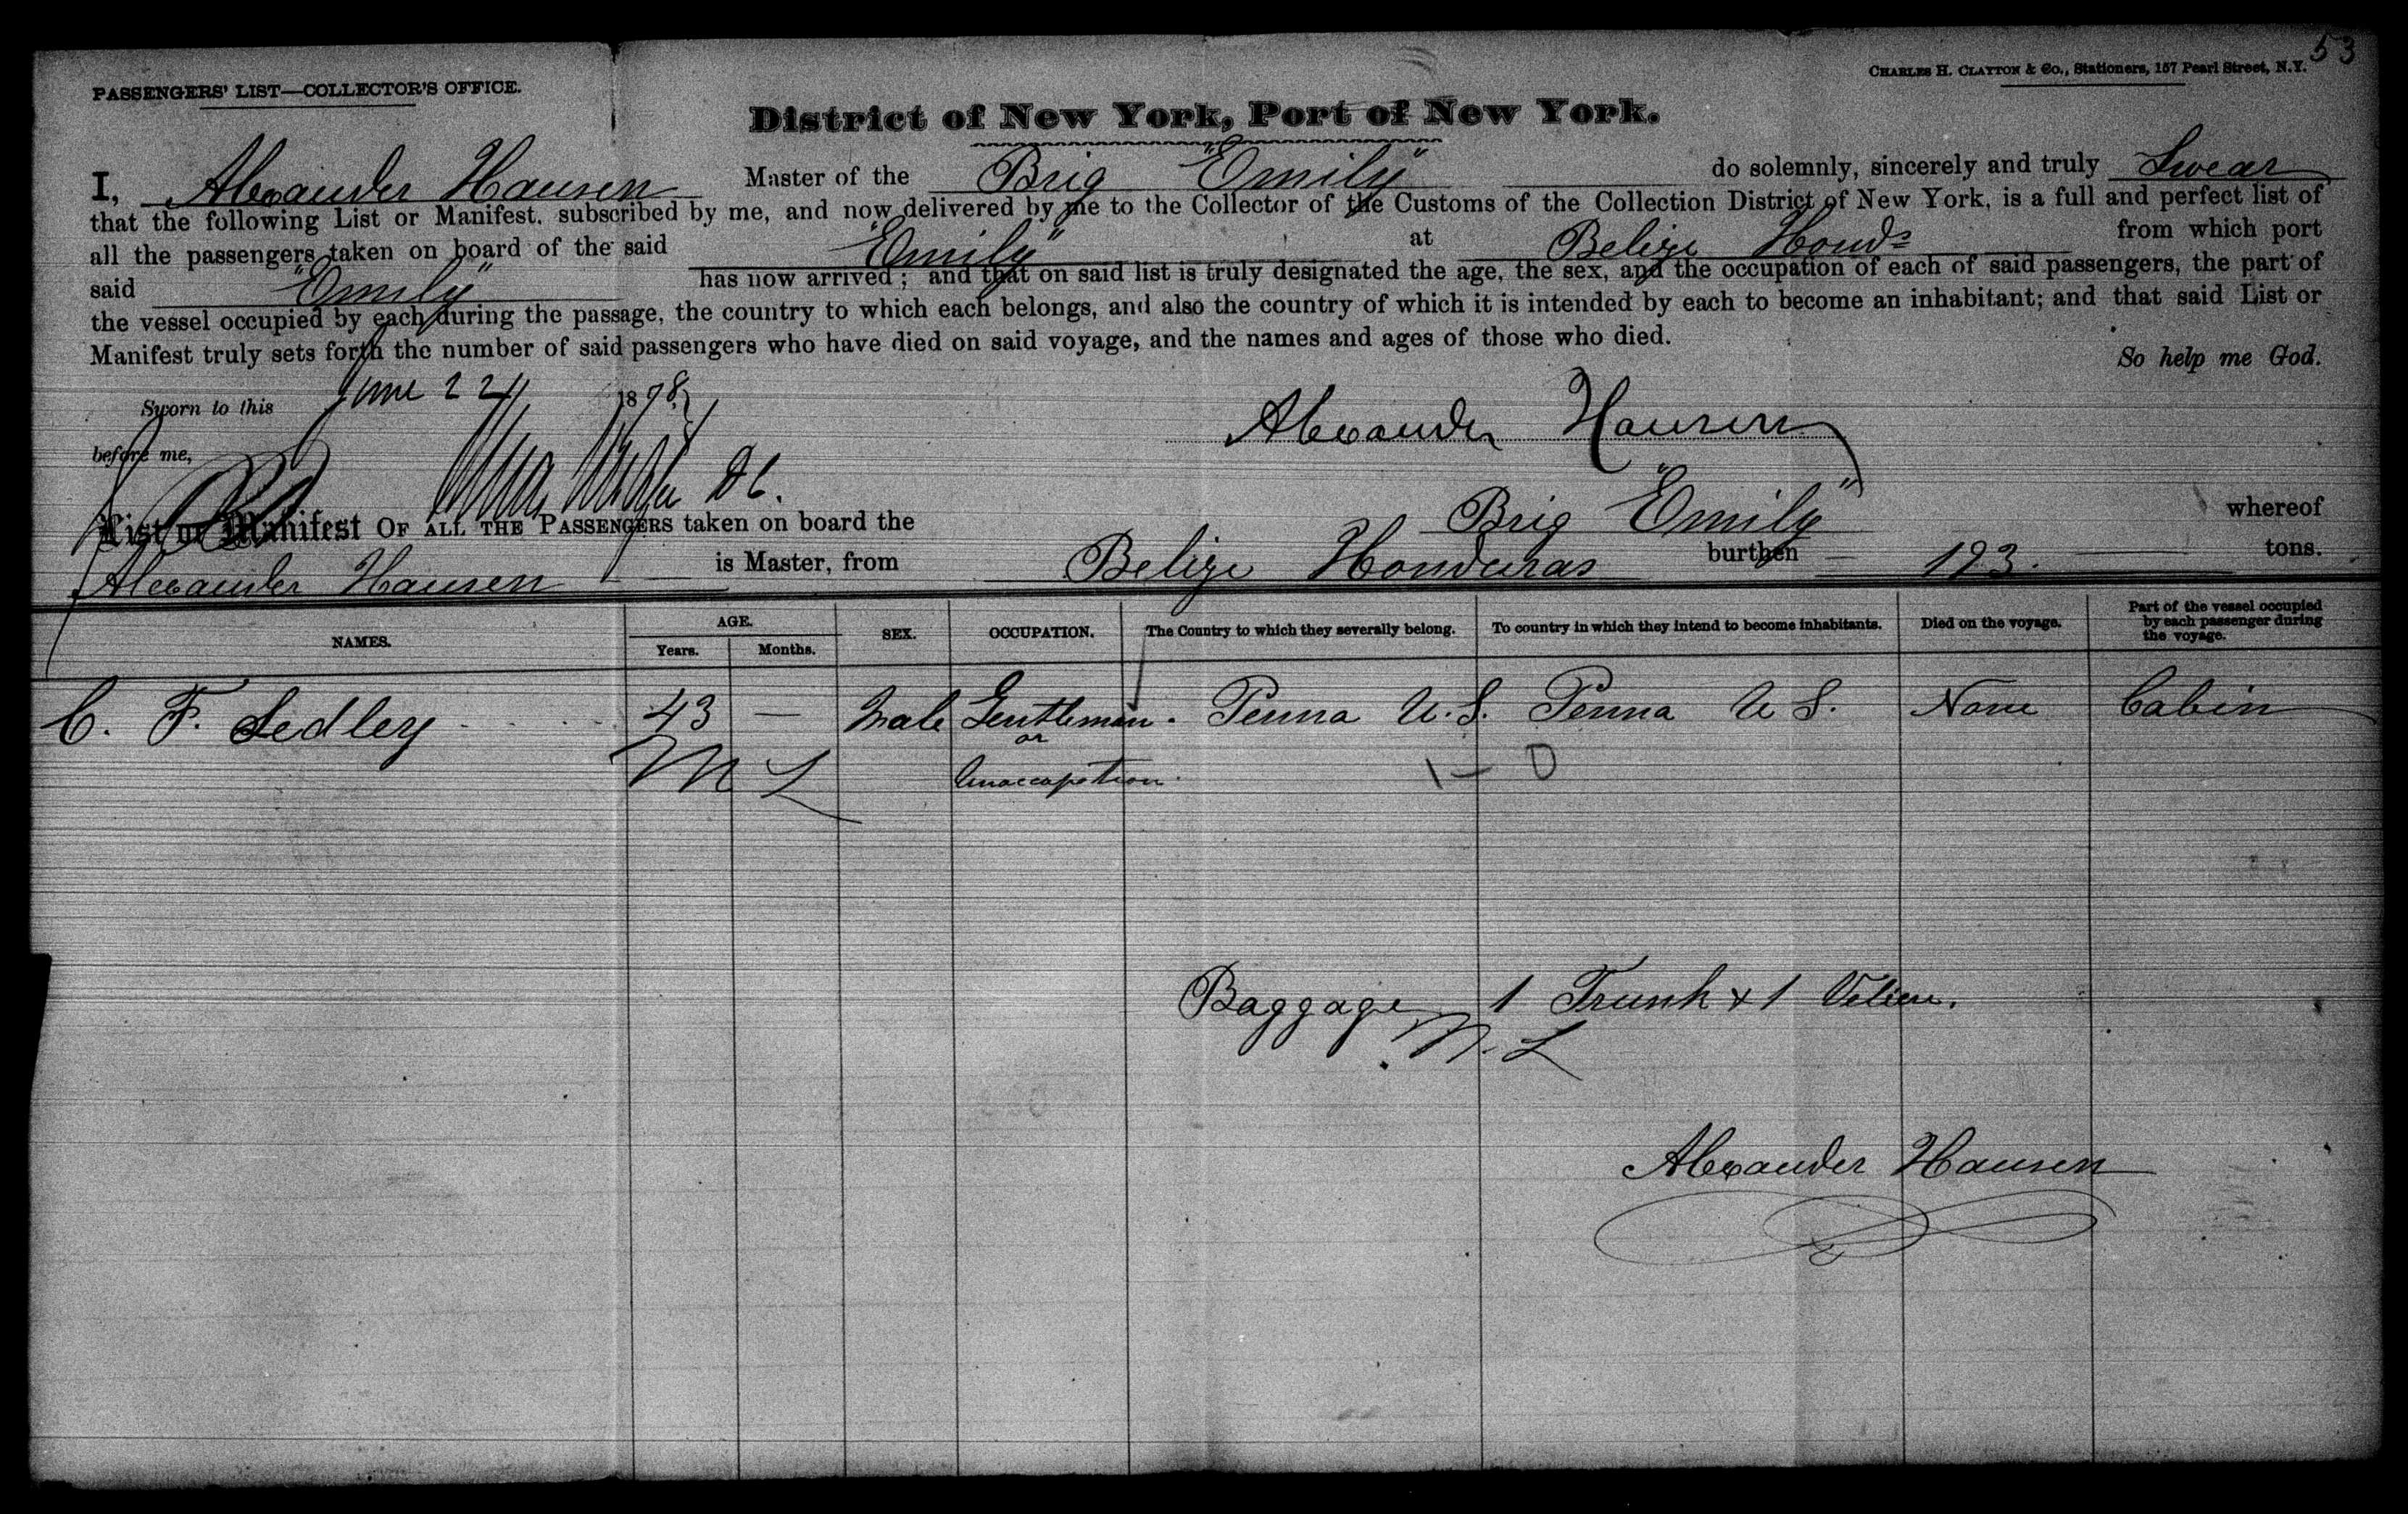 53
PASSENGERS' LIST—COLLECTOR'S OFFICE.
CHARLES H. CLAYTON & Co., Stationers, 157 Pearl Street, N.Y.
District of New York, Port of New York.
I, Alexander Hansen Master of the Brig "Emily" do solemnly, sincerely and truly Swear
that the following List or Manifest, subscribed by me, and now delivered by me to the Collector of the Customs of the Collection District of New York, is a full and perfect list of
all the passengers taken on board of the said "Emily" at Belize Honds from which port
said "Emily" has now arrived; and that on said list is truly designated the age, the sex, and the occupation of each of said passengers, the part of
the vessel occupied by each during the passage, the country to which each belongs, and also the country of which it is intended by each to become an inhabitant; and that said List or
Manifest truly sets forth the number of said passengers who have died on said voyage, and the names and ages of those who died.
So help me God.
Sworn to this June 24 1878
Alexander Hansen
before me,
D C.
List or Manifest OF ALL THE PASSENGERS taken on board the Brig "Emily" whereof
Alexander Hansen is Master, from Belize Honduras burthen 193 tons.
NAMES. AGE. Years. Months. SEX. OCCUPATION. The Country to which they severally belong. To country in which they intend to become inhabitants. Died on the voyage. Part of the vessel occupied by each passenger during the voyage.
C. F. Sedley 43 — Male Gentleman. Penna U.S. Penna U S. None Cabin
or
M L Unoccupation. 1 – 0
Baggage 1 Trunk & 1 Velise.
N. L
Alexander Hansen